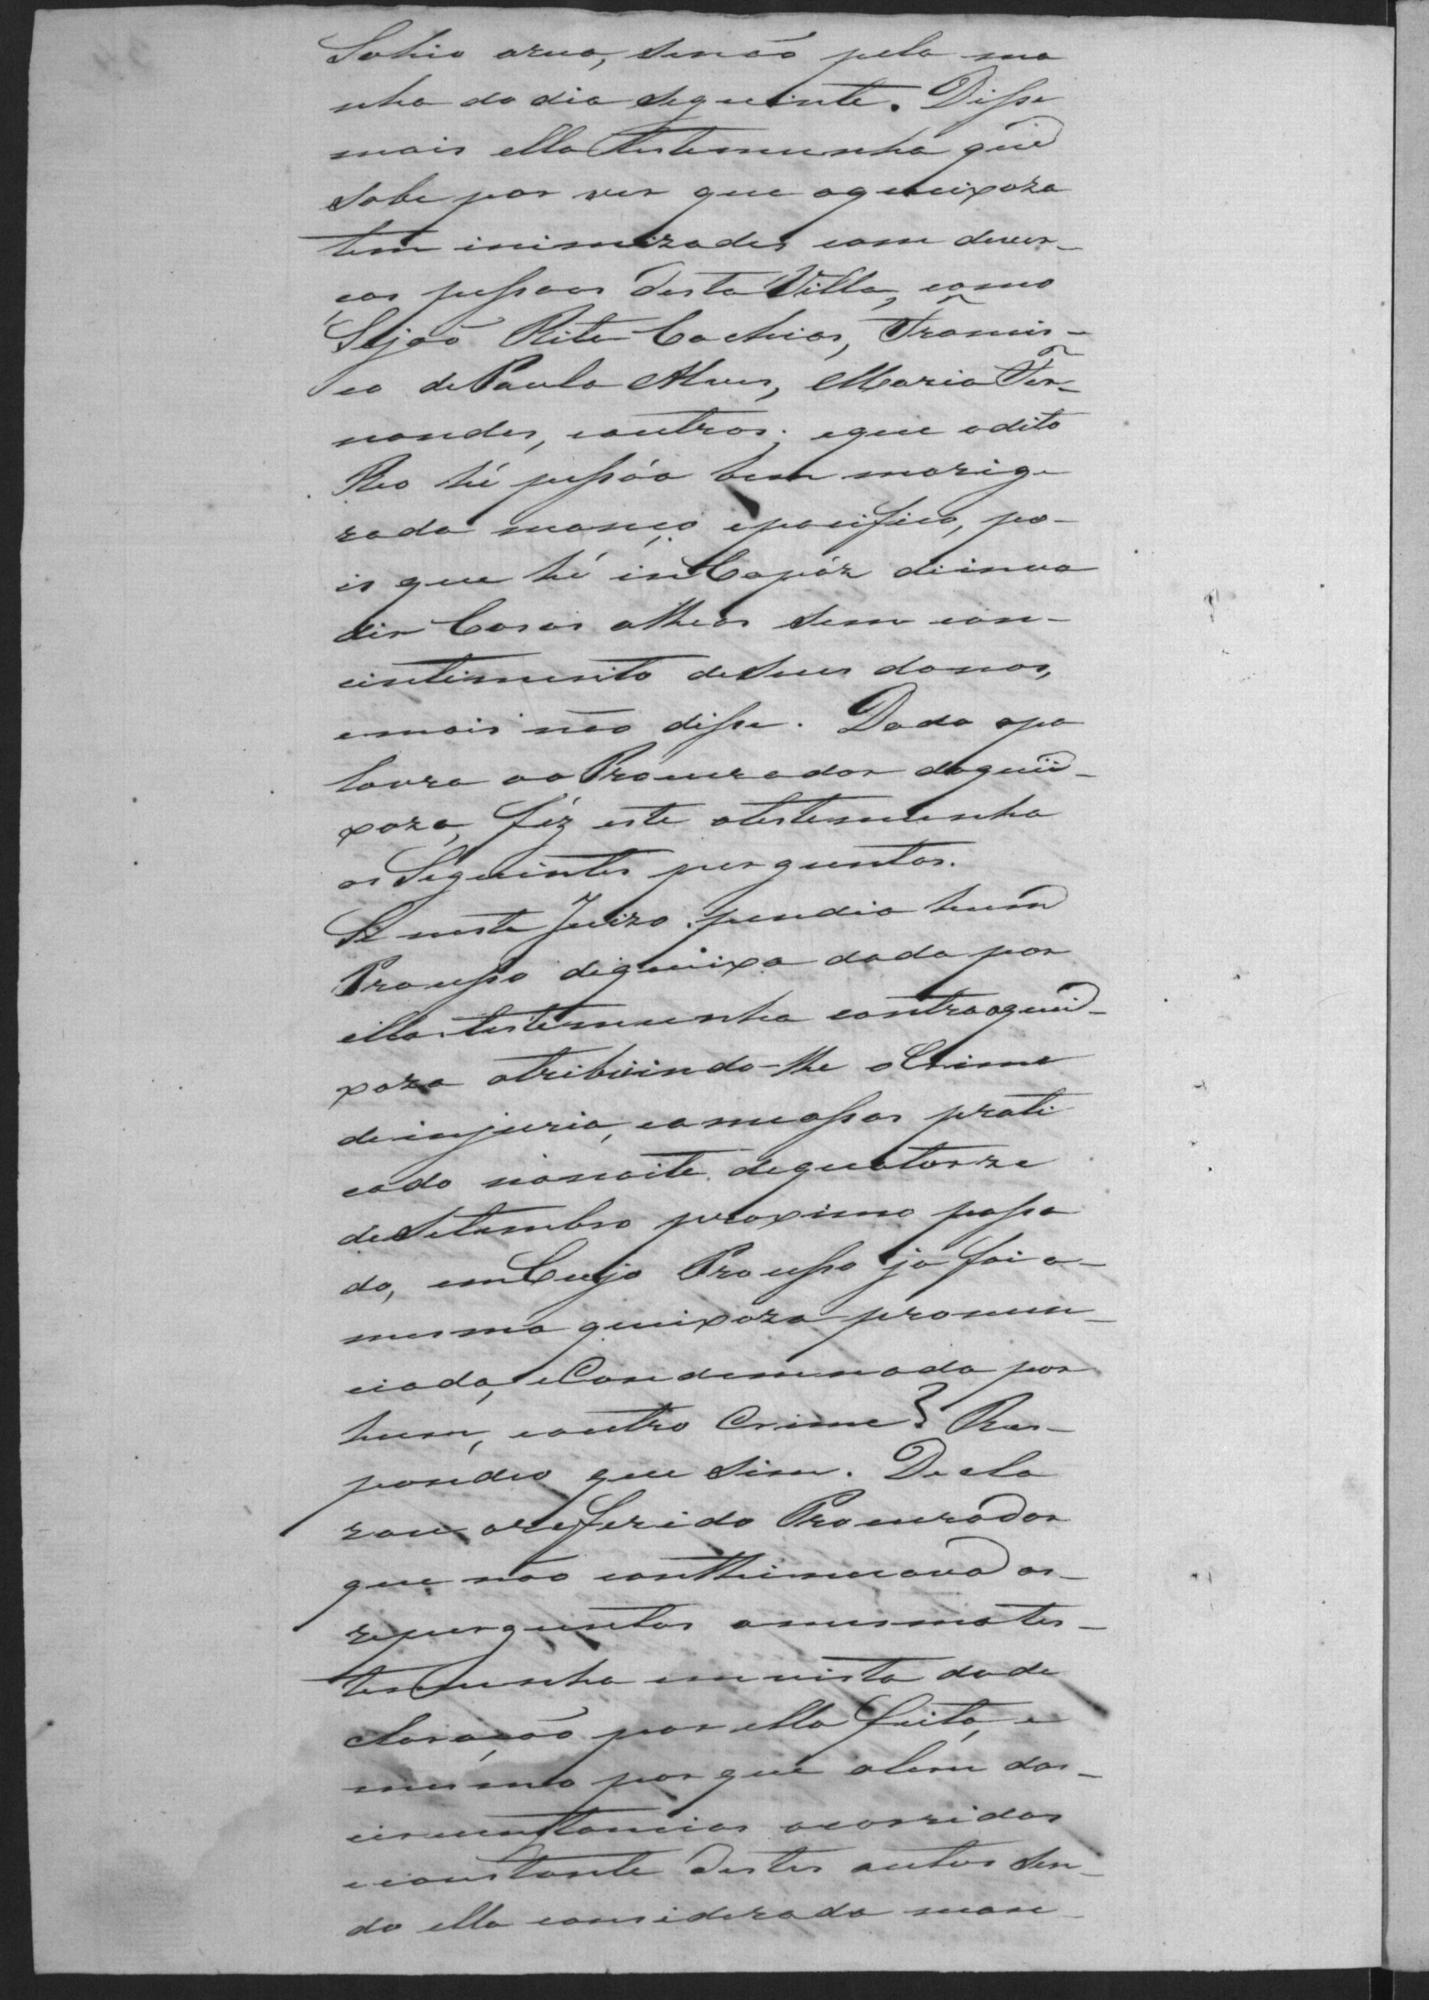 Sahio arua, senão pela ma
nha do dia seguinte. Disse
mais ella testemunha que
sabe por ver que aqueixoza
tem inimizades com diver-
ças pessoas desta Villa, como
Sejaõ Rita Cachias, Francis-
co de Paula Alves, Maria Fer-
nandes, eoutros; eque odito
Reo hé pessôa bem morige
rada manço epacifico, po-
is que hé inCapáz deinva
dir Casas alheas sem con-
cintimento deseus donos,
emais não disse. Dada apa
lavra ao Procurador daquei-
xoza, féz este atestemunha
as Seguintes perguntas.
Se neste Juizo pendia hum
Processo dequeixa dada por
ella testemunha contra aquei-
xoza atribuindo-lhe oCrime
deinjuria, eameassas prati
cado nanoite dequatorze
deSetembro proximo passa
do, emCujo Processo já foi a-
mesma queixoza pronun-
ciada, eCondemnada por
hum, eoutro Crime? Res-
pondeo que sim. Decla
rou oreferido Procurador
que não conthinuava as-
reperguntas amesma tes-
temunha emvista dade
claração por ella feita, e
mesmo por que alem das-
circunstancias ocorridas
econstante destes autos sen-
do ella considerada man